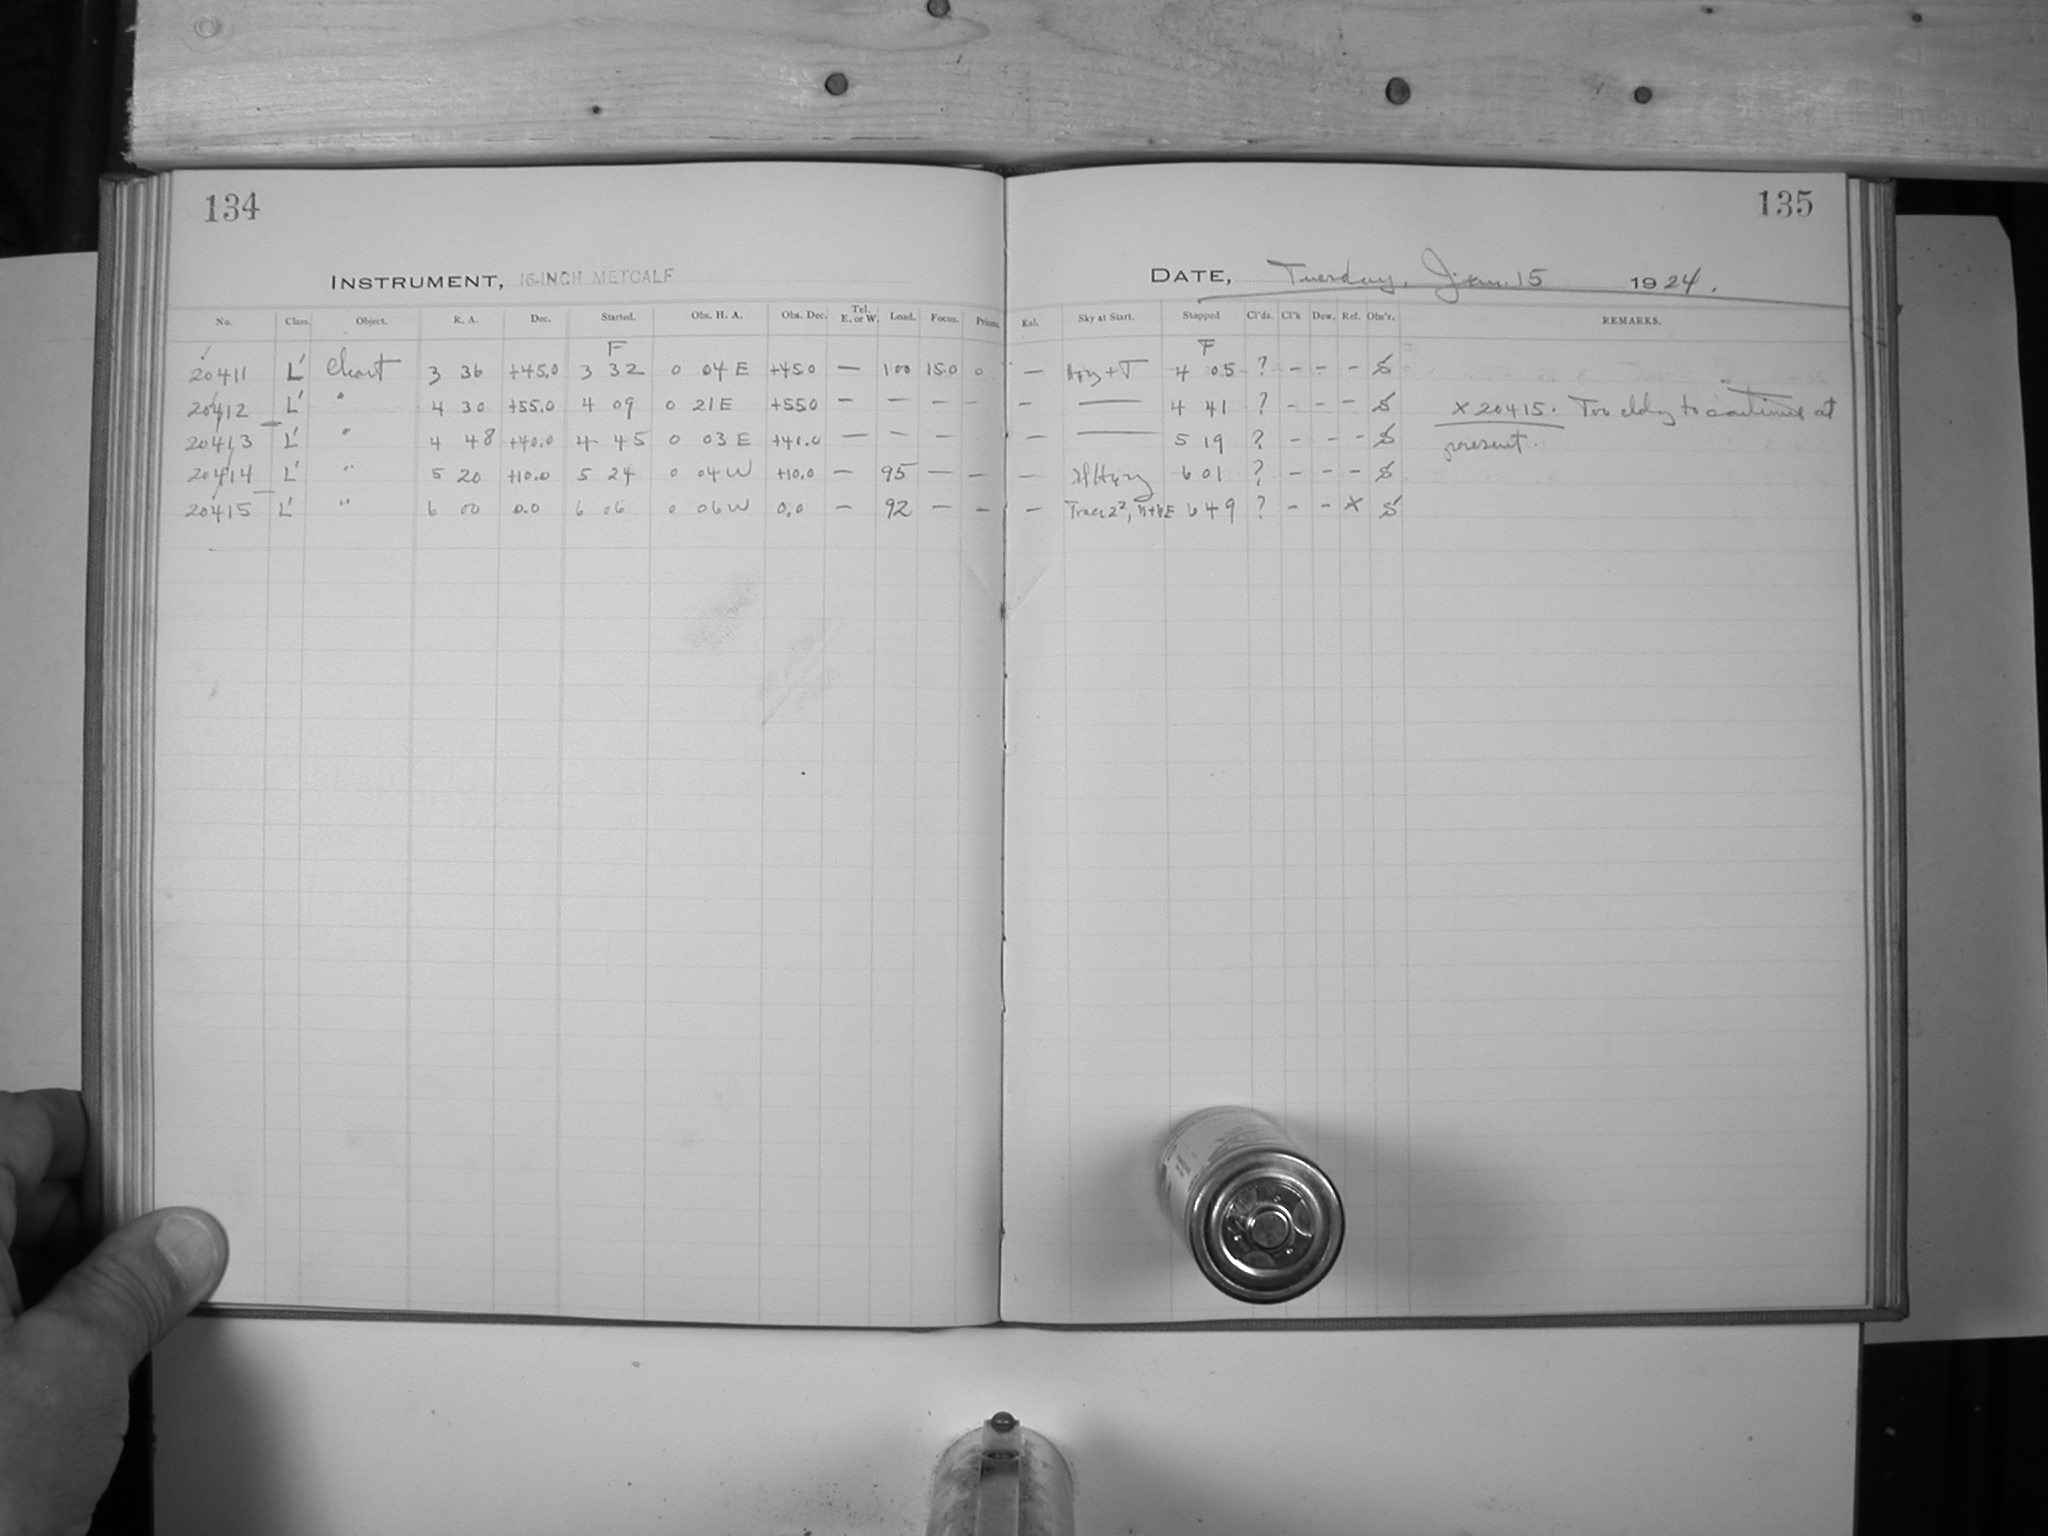 134
135
INSTRUMENT, 16-INCH METCALF
DATE, Tuesday, Jan. 15 1924.
No. Class. Object. R. A. Dec. Started. Obs. H. A. Obs. Dec. Tel. E. or W. Load. Focus. Prisms. Eal. Sky at Start. Stopped Cl'ds. Cl'k Dew. Ref. Obs'r. REMARKS.
F F
20411 L' Chart 3 36 +45.0 3 32 0 04 E +45.0 — 100 15.0 0 — Hzy + T 4 05 ? - - - S
20412 L' " 4 30 +55.0 4 09 0 21 E +55.0 — — — — — — 4 41 ? - - - S X 20415. Too cldy to continue at
20413 L' " 4 48 +40.0 4 45 0 03 E +40.0 — — — — — 5 19 ? - - - S present.
20414 L' " 5 20 +10.0 5 24 0 04 W +10.0 — 95 — — — Hzy 6 01 ? - - - S
20415 L' " 6 00 0.0 6 06 0 06 W 0.0 — 92 — — — 6 49 ? - - X S